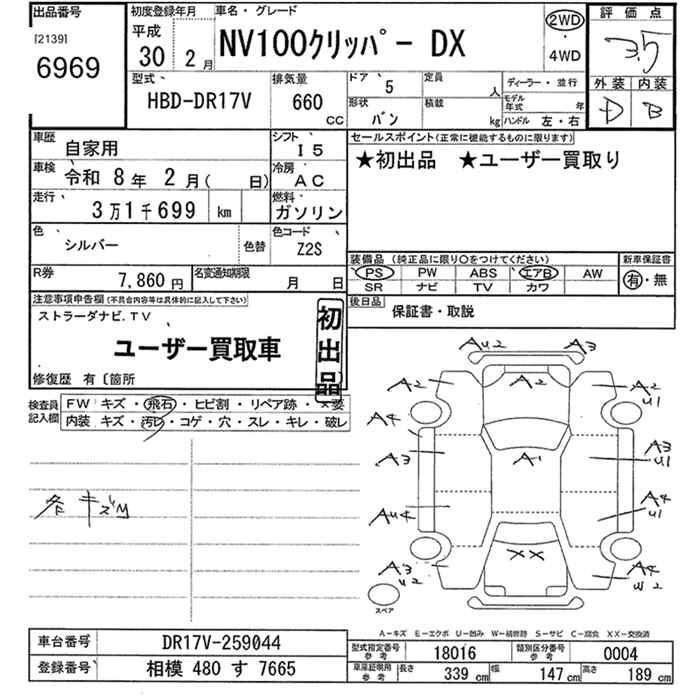 出品番号
[2139]
6969
初度登録年月
平成
30 2月
車名・グレード
NV100クリッパー DX
2WD
4WD
評価点
3.5
外装 内装
D B
型式
HBD-DR17V
排気量
660
CC
ドア
5
形状
バン
定員
人
積載
kg
ディーラー・並行
モデル年式
年
ハンドル 左・右
車歴
自家用
シフト
I5
車検
令和 8年 2月( 日)
冷房
AC
走行
3万1千699 km
燃料
ガソリン
色
シルバー
色替
色コード
Z2S
R券
7,860円
名変通知期限
月 日
セールスポイント(正常に機能するものに限ります)
★初出品 ★ユーザー買取り
装備品(純正品に限り○をつけてください)
PS PW ABS エアB AW
SR ナビ TV カワ
新車保証書
有・無
後日品
保証書・取説
注意事項申告欄(不具合内容等は具体的に記入して下さい)
ストラーダナビ.TV
ユーザー買取車
初出品
修復歴 有〔箇所
検査員記入欄
FW キズ・飛石・ヒビ割・リペア跡・×要
内装 キズ・汚レ・コゲ・穴・スレ・キレ・破レ
各キズM
AU2 A3
A2 A2 A2
U1
A4
A3 A1 A3
U1
AU4 A4
U1
XX
A3
U2
A4
W2
スペア
A-キズ E-エクボ U-凹み W-補修跡 S-サビ C-腐食 XX-交換済
車台番号
DR17V-259044
登録番号
相模 480 す 7665
型式指定番号
参考
18016
類別区分番号
参考
0004
車庫証明用
参考
長さ
339 cm
幅
147 cm
高さ
189 cm